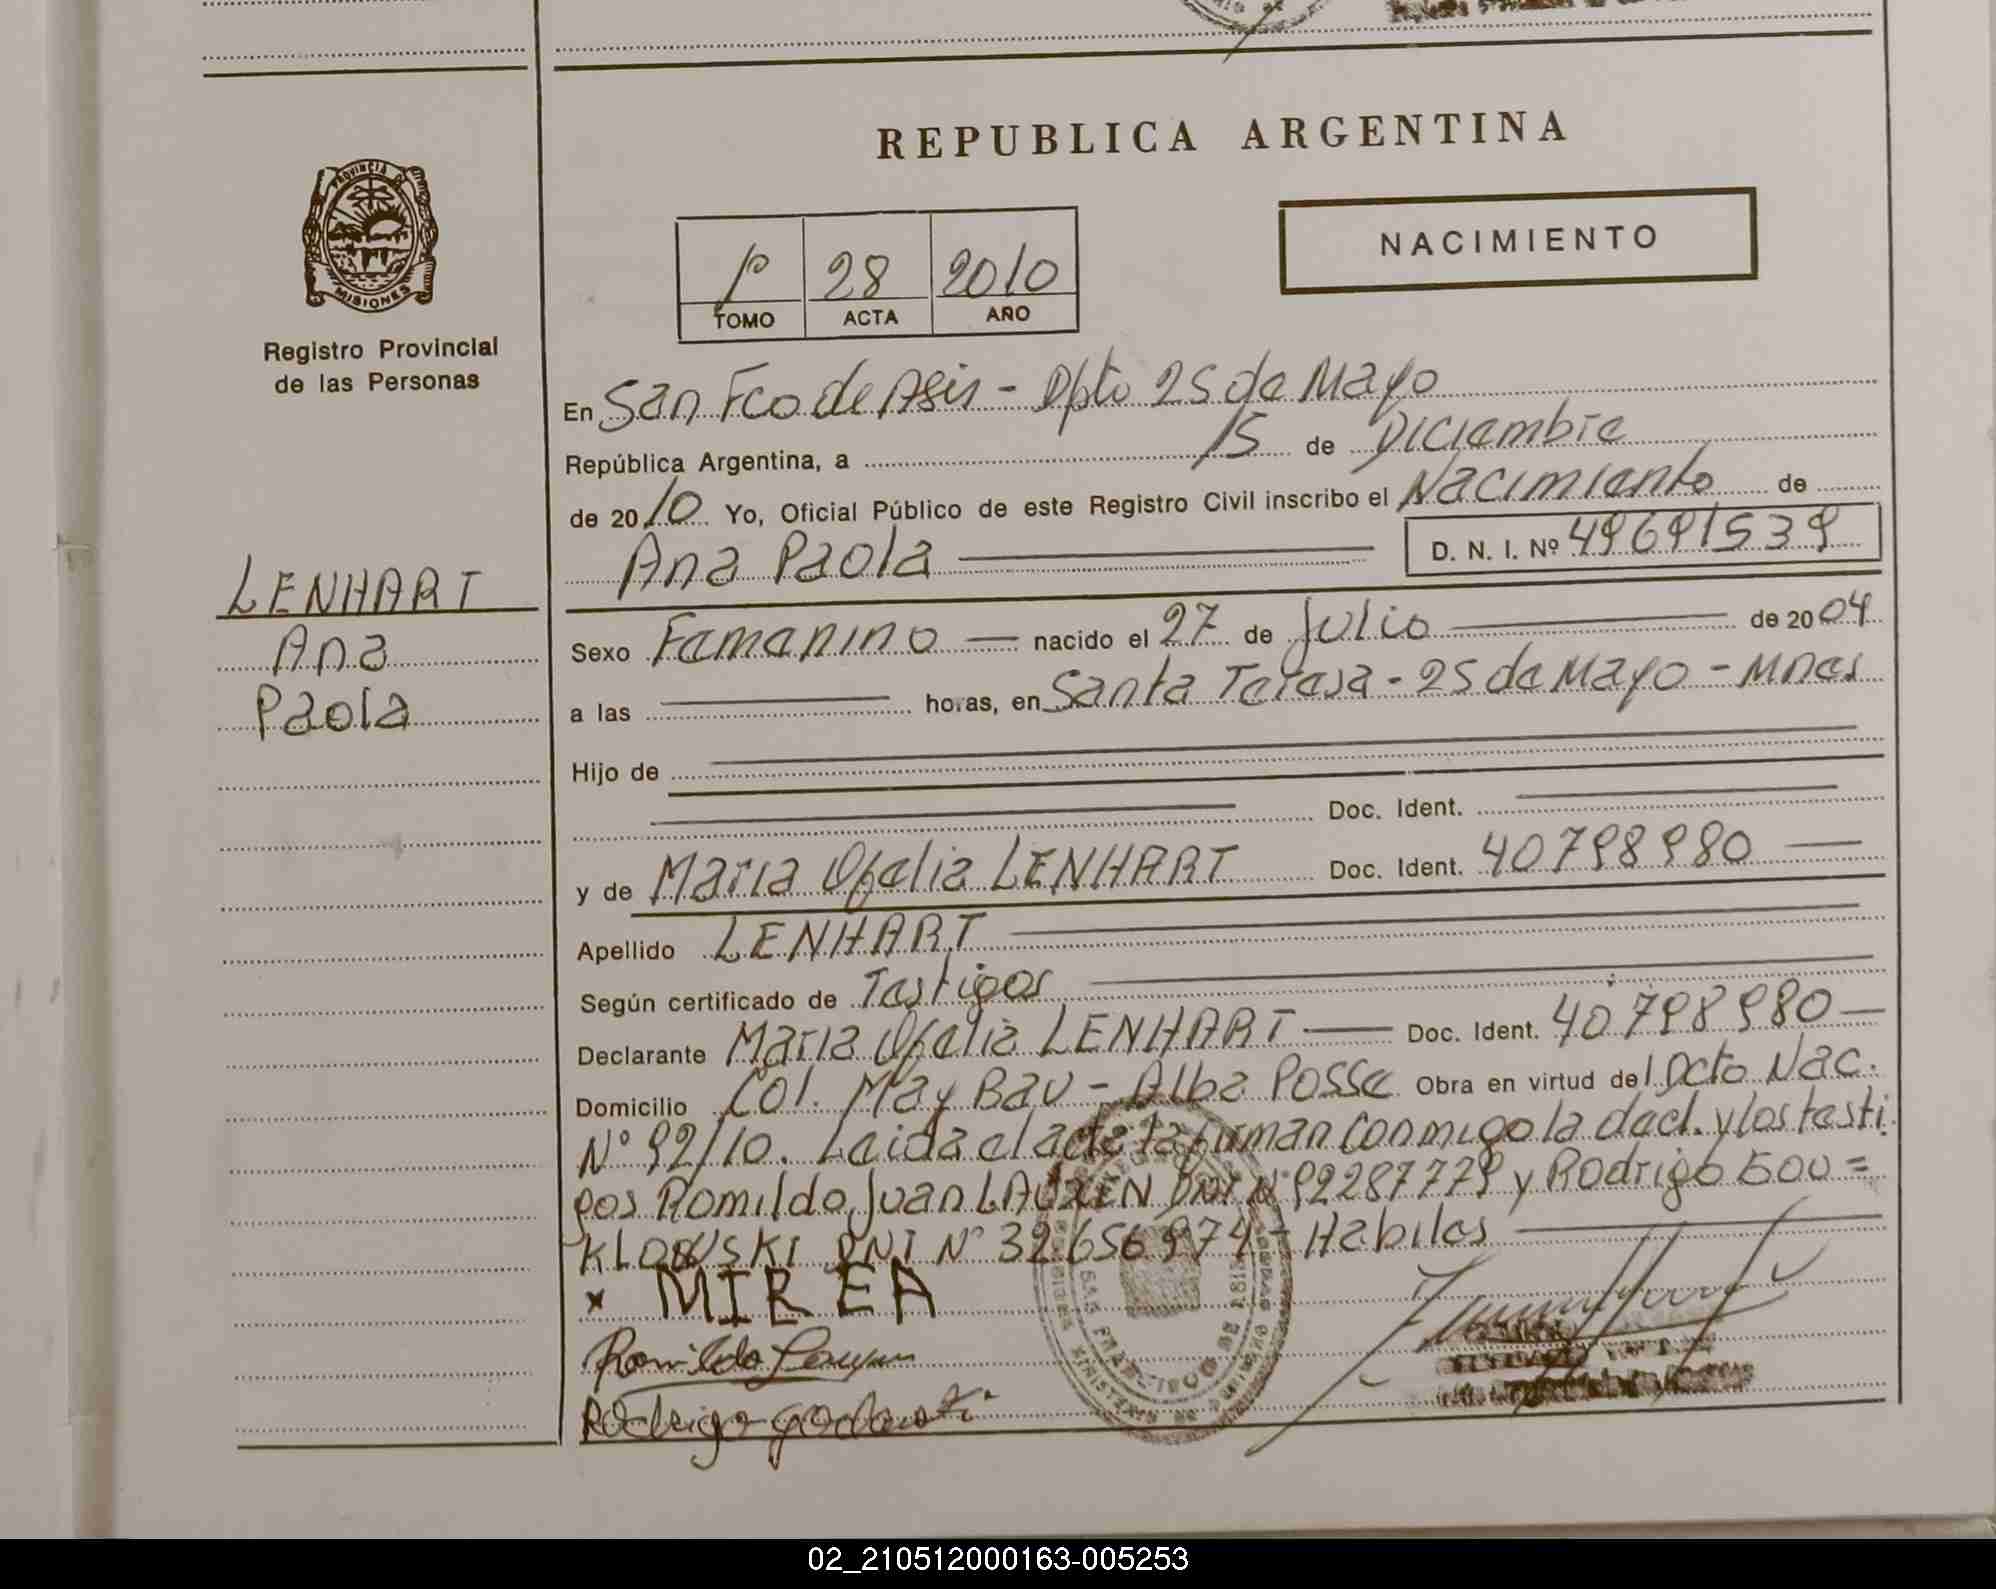 REPUBLICA ARGENTINA
PROVINCIA DE
MISIONES
Registro Provincial
de las Personas
NACIMIENTO
28 2010
TOMO ACTA AÑO
En San Fco de Asis - Dpto 25 de Mayo
República Argentina, a 15 de Diciembre
de 2010 Yo, Oficial Público de este Registro Civil inscribo el Nacimiento de
Ana Paola D. N. I. Nº 49691539
LENHART
Ana
Paola
Sexo Femenino nacido el 27 de Julio de 2004
a las horas, en Santa Teresa - 25 de Mayo - Mnes
Hijo de
Doc. Ident.
y de Maria Ofelia LENHART Doc. Ident. 40798980
Apellido LENHART
Según certificado de Testigos
Declarante Maria Ofelia LENHART Doc. Ident. 40798980
Domicilio Col. May Bau - Alba Posse Obra en virtud del Dcto Nac.
Nº 92/10. Leida el acta la firman conmigo la decl. y los testi
gos Romildo Juan LAUXEN DNI Nº 92287779 y Rodrigo GOU=
KLOWSKI DNI Nº 32.656974 - Habiles
x MIREA
Romildo
Rodrigo
02_210512000163-005253